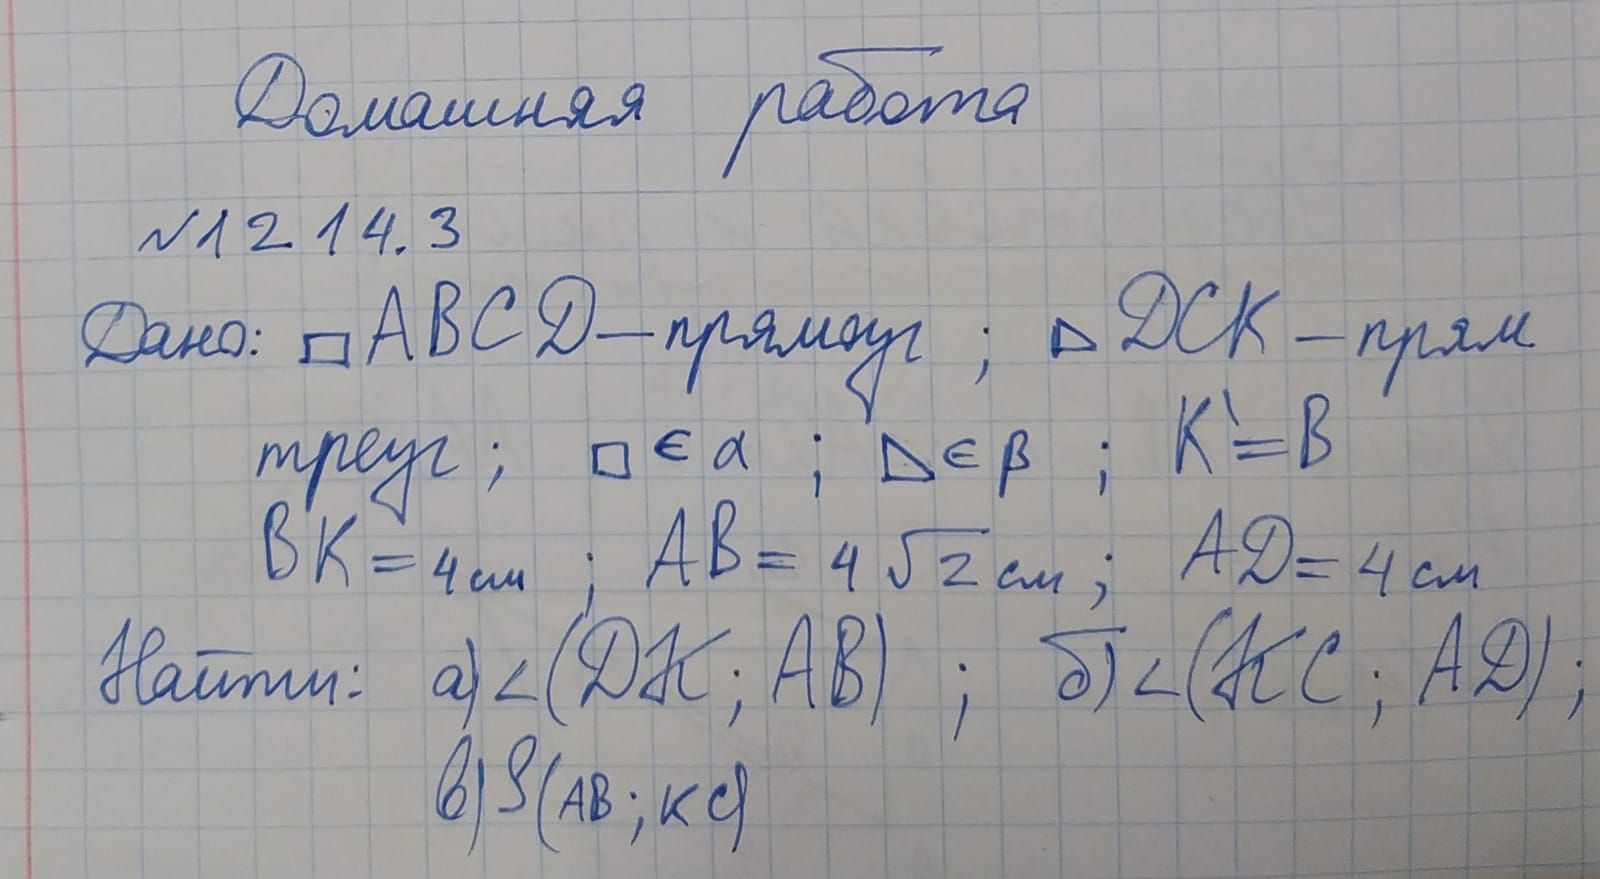 Домашняя работа
№12 14.3
Дано: □ABCD – прямоуг ; ◺DCK – прям
треуг ; □ ∈ α ; ◺ ∈ β ; K' = B
BK = 4 см ; AB = 4√2 см ; AD = 4 см
Найти: а) ∠(DK ; AB) ; б) ∠(KC ; AD) ;
в) ρ(AB ; KC)